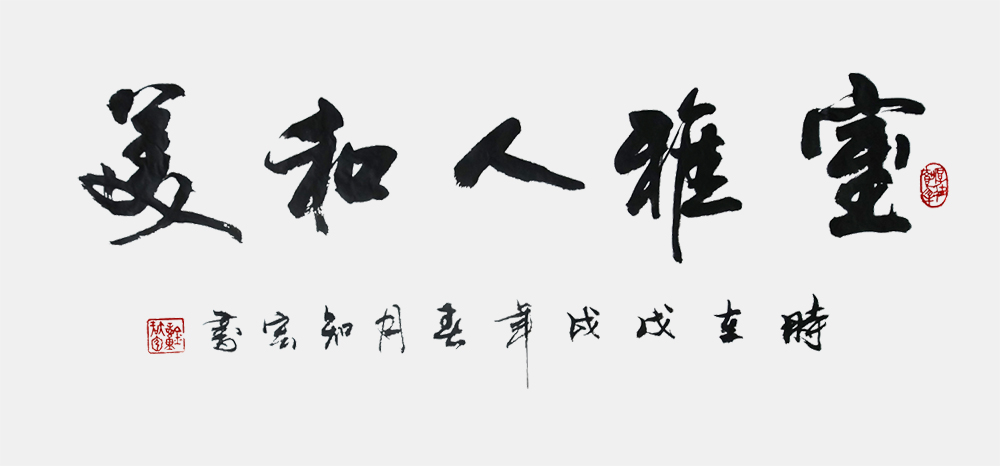 室雅人和美
時在戊戌年春月知宏書